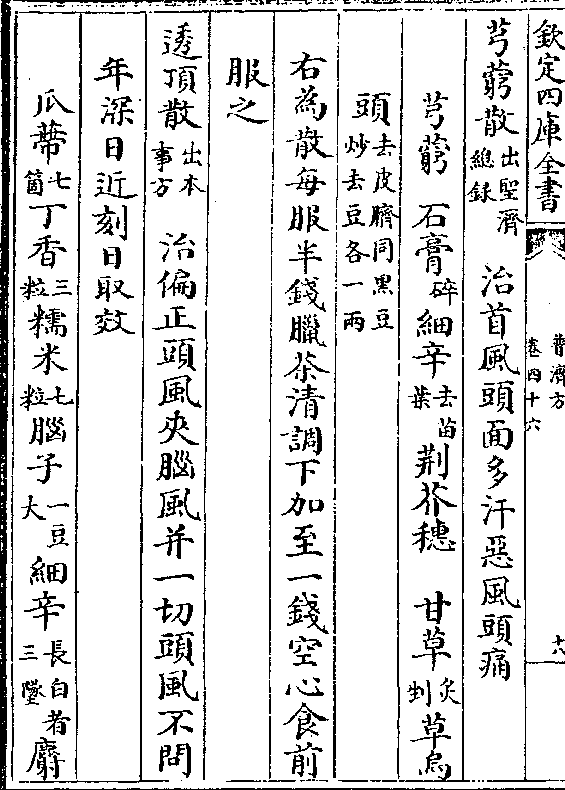 欽定四庫全書
普濟方
卷四十六
十六
芎藭散出聖濟總録 治首風頭面多汗惡風頭痛
芎藭 石膏碎細辛去苗葉荆芥穗 甘草炙剉草烏
頭去皮臍同黑豆炒去豆各一兩
右為散每服半錢臘茶清調下加至一錢空心食前
服之
透頂散出本事方 治偏正頭風夾腦風并一切頭風不問
年深日近剋日取效
瓜蔕七箇丁香三粒糯米七粒腦子一豆大細辛長白者三墜麝